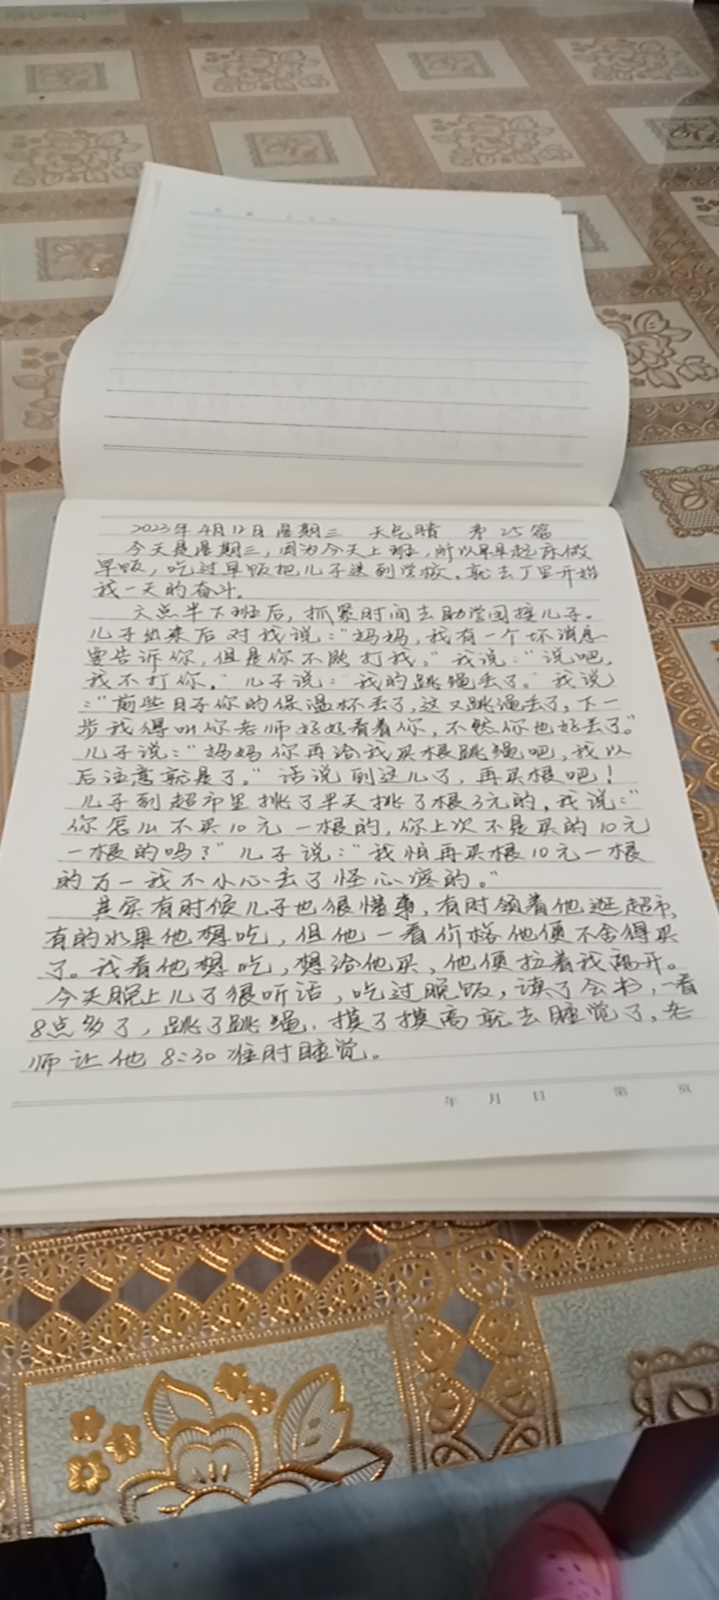 2023年4月12日 星期三 天气晴 第25篇
今天是星期三，因为今天上班，所以早早起床做
早饭，吃过早饭把儿子送到学校。就去丁里开始
我一天的奋斗。
六点半下班后，抓紧时间去助学园接儿子。
儿子出来后对我说：“妈妈，我有一个坏消息
要告诉你，但是你不能打我。”我说：“说吧，
我不打你。”儿子说：“我的跳绳丢了。”我说
：“前些日子你的保温杯丢了，这又跳绳丢了，下一
步我得叫你老师好好看着你，不然你也好丢了。”
儿子说：“妈妈你再给我买根跳绳吧，我以
后注意就是了。”话说到这儿了，再买根吧！
儿子到超市里挑了半天挑了根3元的，我说：“
你怎么不买10元一根的，你上次不是买的10元
一根的吗？”儿子说：“我怕再买根10元一根
的万一我不小心丢了怪心疼的。”
其实有时候儿子也很懂事，有时领着他逛超市，
有的水果他想吃，但他一看价格他便不舍得买
了。我看他想吃，想给他买，他便拉着我离开。
今天晚上儿子很听话，吃过晚饭，读了会书，一看
8点多了，跳了跳绳，摸了摸高就去睡觉了，老
师让他8:30准时睡觉。
年 月 日 第 页